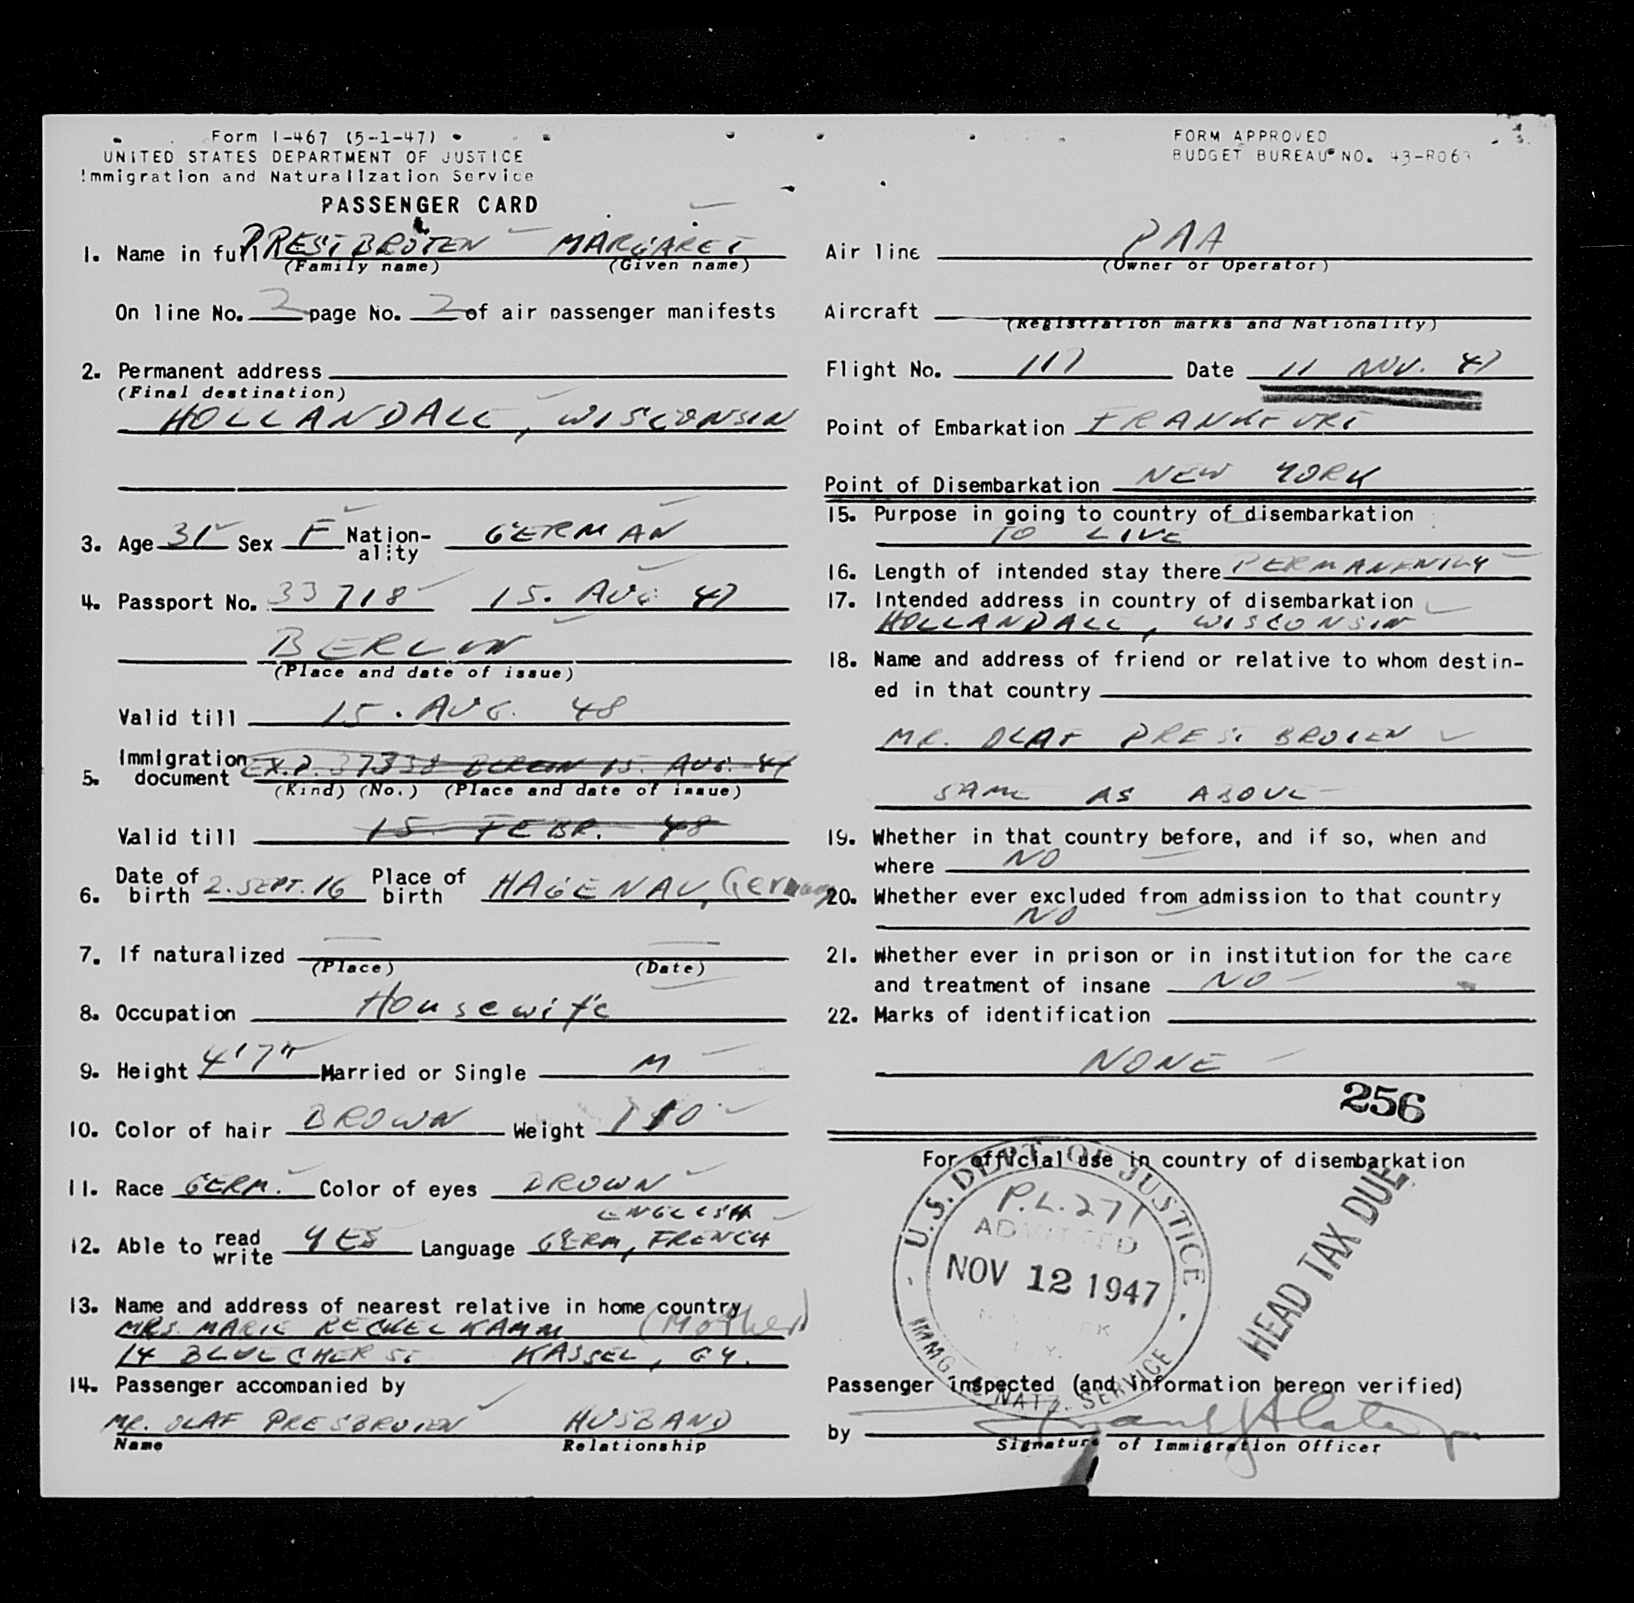 Form I-467 (5-1-47)
UNITED STATES DEPARTMENT OF JUSTICE
Immigration and Naturalization Service
PASSENGER CARD
FORM APPROVED
BUDGET BUREAU NO. 43-R063
1. Name in full PRESTBROTEN MARGARET
(Family name) (Given name)
On line No. 2 page No. 2 of air passenger manifests
2. Permanent address
(Final destination)
HOLLANDALE, WISCONSIN
3. Age 31 Sex F Nation-ality GERMAN
4. Passport No. 33718 15. AUG 47
BERLIN
(Place and date of issue)
Valid till 15. AUG. 48
5. Immigration document EX.P. 37338 BERLIN 15. AUG. 47
(Kind) (No.) (Place and date of issue)
Valid till 15 FEBR. 48
6. Date of birth 2. SEPT. 16 Place of birth HAGENAU, Germany
7. If naturalized
(Place) (Date)
8. Occupation Housewife
9. Height 4'7" Married or Single M
10. Color of hair BROWN Weight 110
11. Race GERM. Color of eyes BROWN
ENGLISH
12. Able to read write YES Language GERM, FRENCH
13. Name and address of nearest relative in home country
MRS. MARIE RECKELKAMM (Mother)
14 BLUECHER ST KASSEL, GY.
14. Passenger accompanied by
MR. OLAF PRESBROTEN HUSBAND
Name Relationship
Air line PAA
(Owner or Operator)
Aircraft
(Registration marks and Nationality)
Flight No. 117 Date 11 NOV. 47
Point of Embarkation FRANKFURT
Point of Disembarkation NEW YORK
15. Purpose in going to country of disembarkation
TO LIVE
16. Length of intended stay there PERMANENTLY
17. Intended address in country of disembarkation
HOLLANDALL, WISCONSIN
18. Name and address of friend or relative to whom destin-
ed in that country
MR. OLAF PREST BROTEN
SAME AS ABOVE
19. Whether in that country before, and if so, when and
where NO
20. Whether ever excluded from admission to that country
NO
21. Whether ever in prison or in institution for the care
and treatment of insane NO
22. Marks of identification
NONE
256
For official use in country of disembarkation
U.S. DEPT. OF JUSTICE
P.L. 271
ADMITTED
NOV 12 1947
IMMG. & NATZ. SERVICE
HEAD TAX DUE
Passenger inspected (and information hereon verified)
by
Signature of Immigration Officer